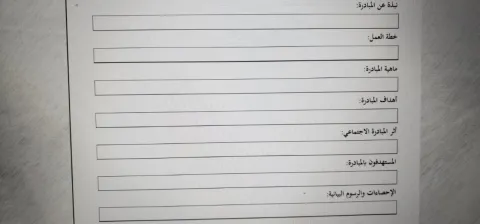 نبذة عن المبادرة:
خطة العمل:
ماهية المبادرة:
أهداف المبادرة:
أثر المبادرة الاجتماعي:
المستهدفون بالمبادرة:
الإحصاءات والرسوم البيانية: